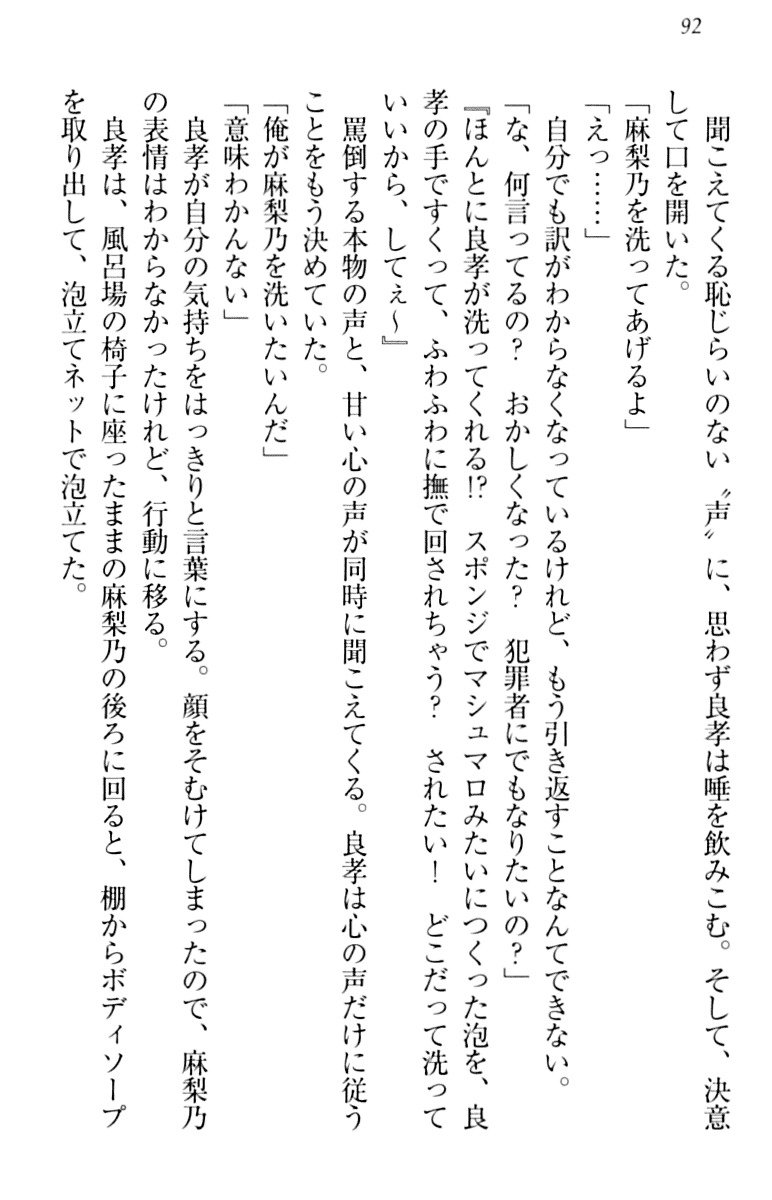 92
聞こえてくる恥じらいのない〝声〟に、思わず良孝は唾を飲みこむ。そして、決意
して口を開いた。
「麻梨乃を洗ってあげるよ」
「えっ……」
自分でも訳がわからなくなっているけれど、もう引き返すことなんてできない。
「な、何言ってるの？　おかしくなった？　犯罪者にでもなりたいの？」
『ほんとに良孝が洗ってくれる!?　スポンジでマシュマロみたいにつくった泡を、良
孝の手ですくって、ふわふわに撫で回されちゃう？　されたい！　どこだって洗って
いいから、してぇ〜』
罵倒する本物の声と、甘い心の声が同時に聞こえてくる。良孝は心の声だけに従う
ことをもう決めていた。
「俺が麻梨乃を洗いたいんだ」
「意味わかんない」
良孝が自分の気持ちをはっきりと言葉にする。顔をそむけてしまったので、麻梨乃
の表情はわからなかったけれど、行動に移る。
良孝は、風呂場の椅子に座ったままの麻梨乃の後ろに回ると、棚からボディソープ
を取り出して、泡立てネットで泡立てた。